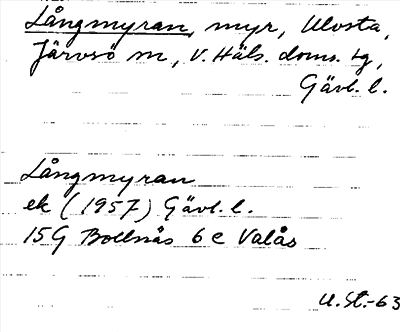 Långmyran, myr, Ulvsta,
Järvsö sn, V. Häls. doms. tg,
Gävl. l.
Långmyran
ek (1957) Gävl. l.
15G Bollnäs 6 c Valås
U. St.-63